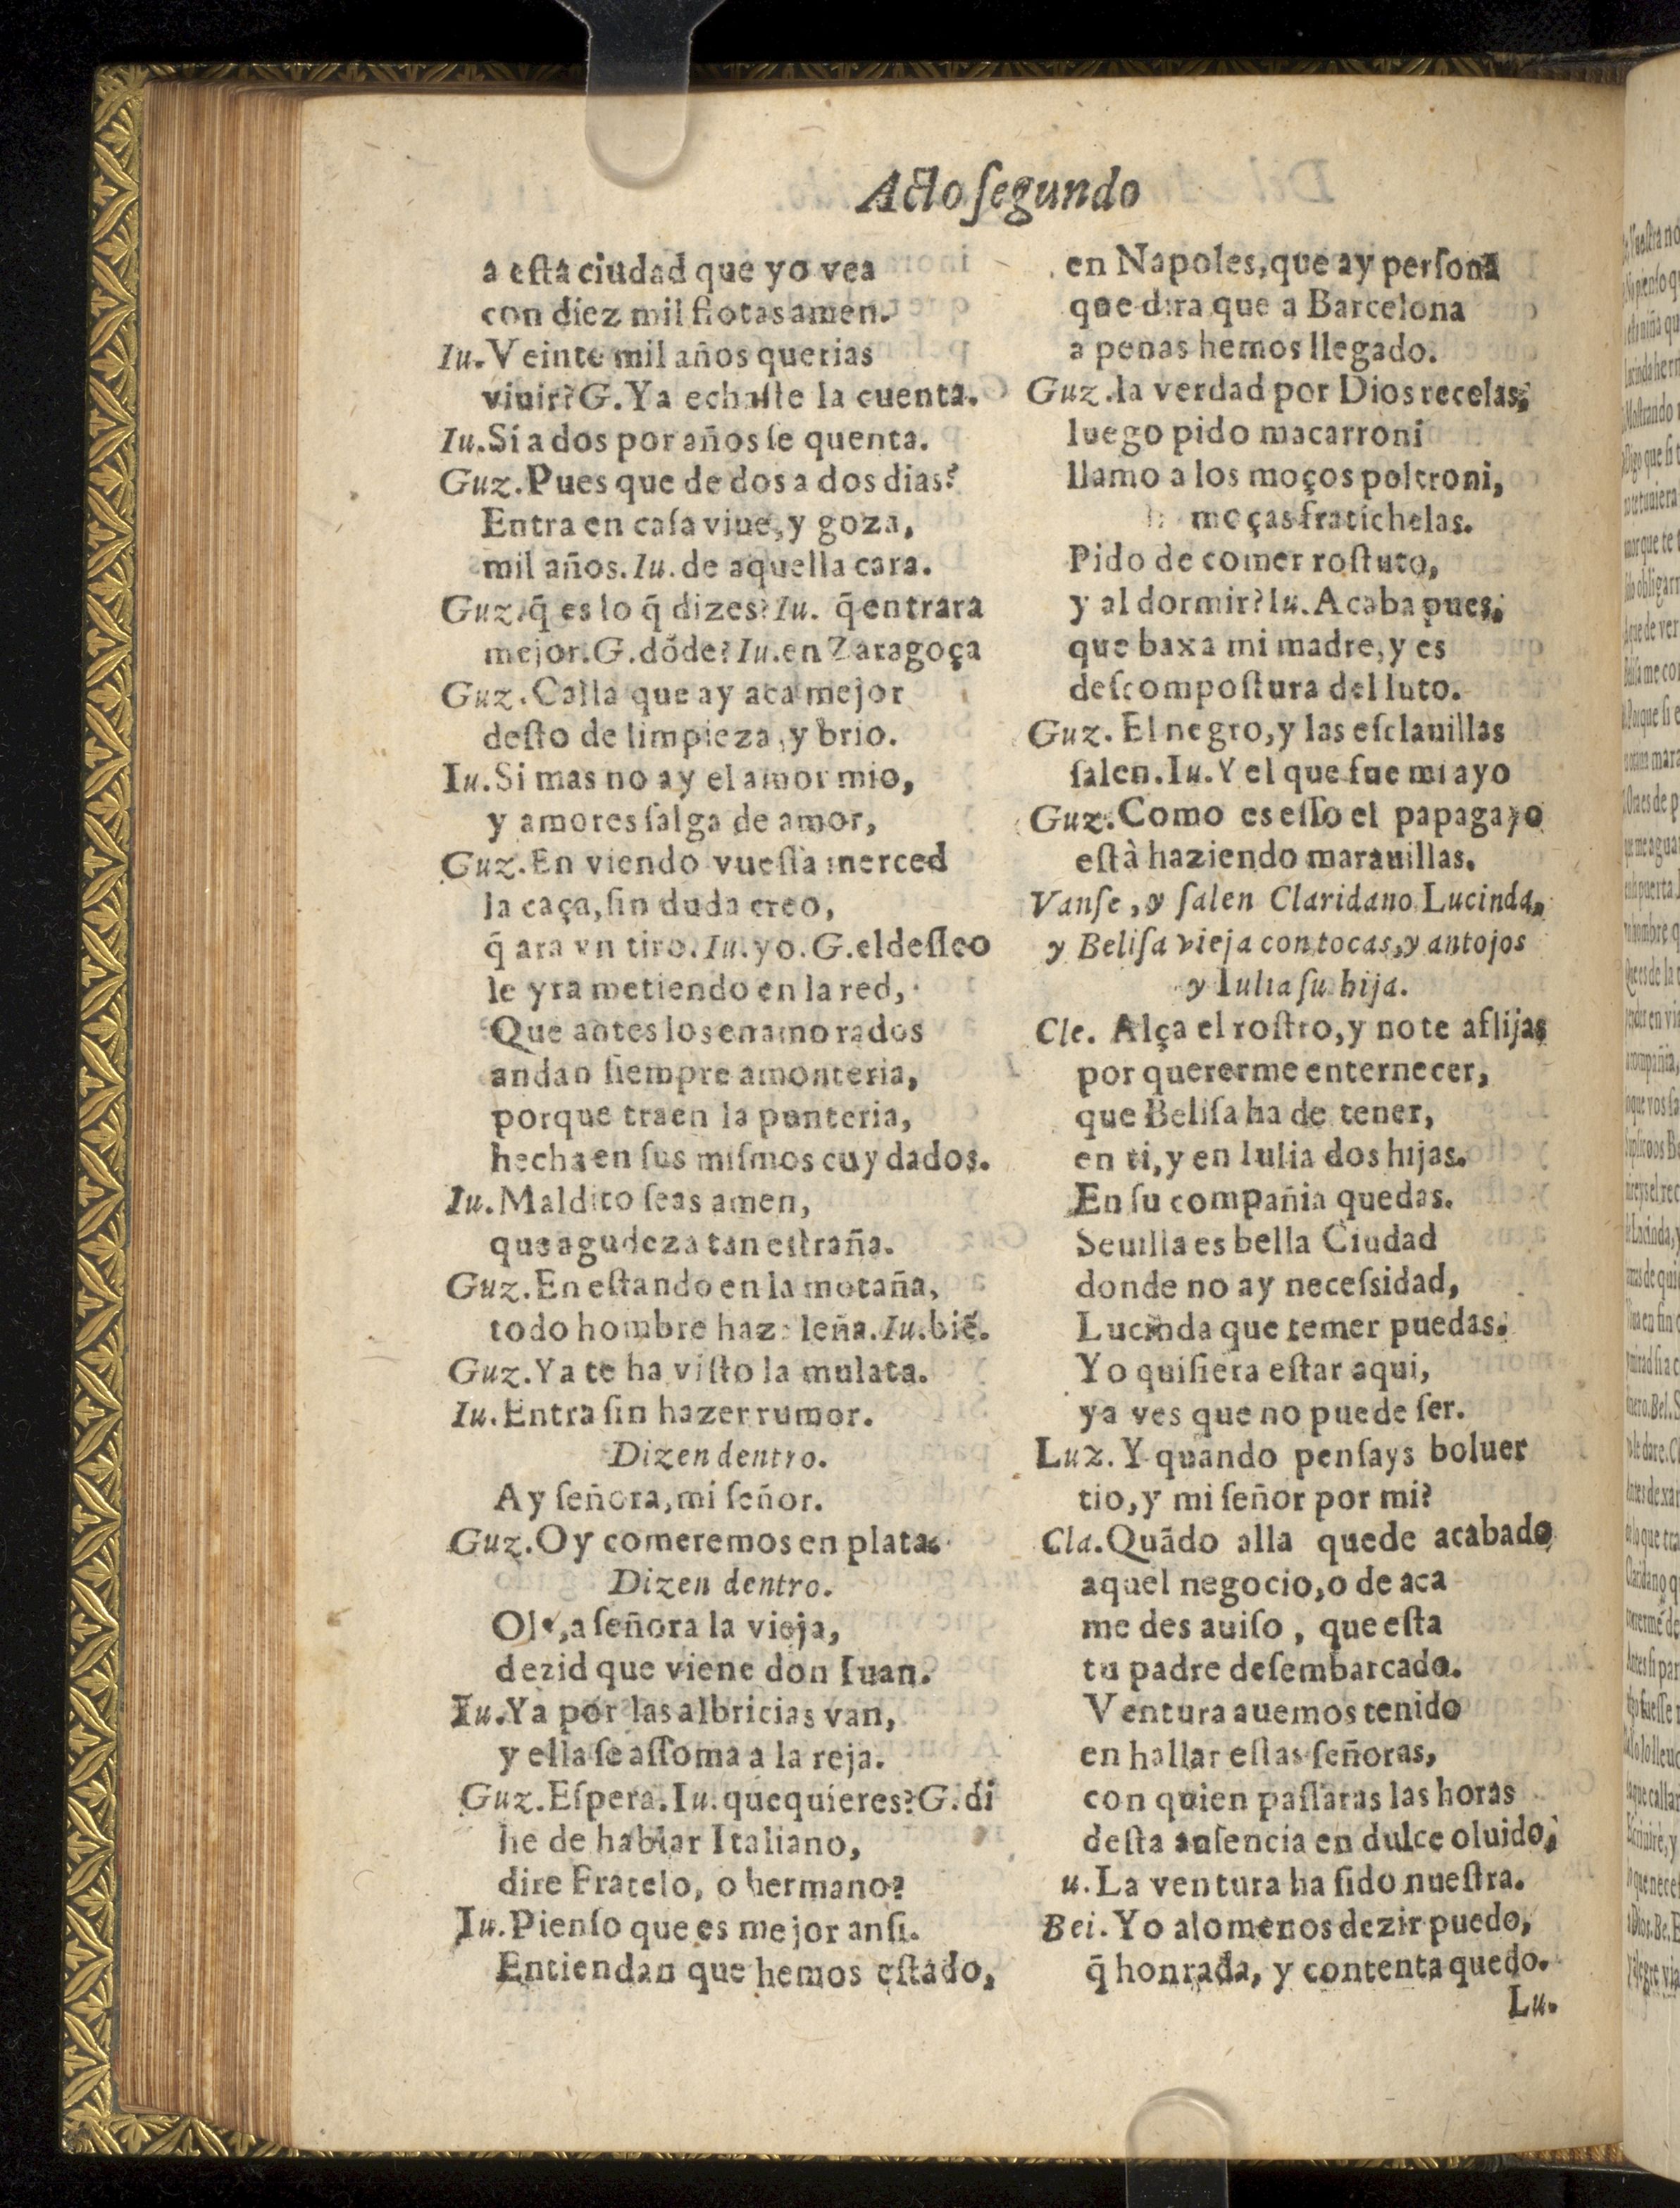 Acto ſegundo
a eſta ciudad que yo vea
con diez mil flotas amen.
Iu. Veinte mil años querias
viuir? G. Ya echaſte la cuenta.
Iu. Si a dos por años ſe quenta.
Guz. Pues que de dos a dos dias?
Entra en caſa viue, y goza,
mil años. Iu. de aquella cara.
Guz. q̃ es lo q̃ dizes? Iu. q̃ entrara
mejor. G. dõde? Iu. en Zaragoça
Guz. Calla que ay aca mejor
deſto de limpieza, y brio.
Iu. Si mas no ay el amor mio,
y amores ſalga de amor,
Guz. En viendo vueſſa merced
la caça, ſin duda creo,
q̃ ara vn tiro. Iu. yo. G. el deſſeo
le yra metiendo en la red,
Que antes los enamorados
andan ſiempre a monteria,
porque traen la punteria,
hecha en ſus miſmos cuydados.
Iu. Maldito ſeas amen,
que agudeza tan eſtraña.
Guz. En eſtando en la motaña,
todo hombre haze leña. Iu. biẽ.
Guz. Ya te ha viſto la mulata.
Iu. Entra ſin hazer rumor.
Dizen dentro.
Ay ſeñora, mi ſeñor.
Guz. Oy comeremos en plata.
Dizen dentro.
Ola, a ſeñora la vieja,
dezid que viene don Iuan.
Iu. Ya por las albricias van,
y ella ſe aſſoma a la reja.
Guz. Eſpera. Iu. que quieres? G. di
he de hablar Italiano,
dire Fratelo, o hermano?
Iu. Pienſo que es mejor anſi.
Entiendan que hemos eſtado,
en Napoles, que ay perſona
que dira que a Barcelona
a penas hemos llegado.
Guz. la verdad por Dios recelas,
luego pido macarroni
llamo a los moços poltroni,
moças fratichelas.
Pido de comer roſtuto,
y al dormir? Iu. Acaba pues,
que baxa mi madre, y es
deſcompoſtura del luto.
Guz. El negro, y las eſclauillas
ſalen. Iu. Y el que fue mi ayo
Guz. Como es eſſo el papagayo
eſtà haziendo marauillas.
Vanſe, y ſalen Claridano Lucinda,
y Beliſa vieja con tocas, y antojos
y Iulia ſu hija.
Cle. Alça el roſtro, y no te aflijas
por quererme enternecer,
que Beliſa ha de tener,
en ti, y en Iulia dos hijas.
En ſu compañia quedas.
Seuilla es bella Ciudad
donde no ay neceſsidad,
Lucinda que temer puedas.
Yo quiſiera eſtar aqui,
ya ves que no puede ſer.
Luz. Y quando penſays boluer
tio, y mi ſeñor por mi?
Cla. Quãdo alla quede acabado
aquel negocio, o de aca
me des auiſo, que eſta
tu padre deſembarcado.
Ventura auemos tenido
en hallar eſtas ſeñoras,
con quien paſſaras las horas
deſta auſencia en dulce oluido,
u. La ventura ha ſido nueſtra.
Bei. Yo alomenos dezir puedo,
q̃ honrada, y contenta quedo.
Lu.